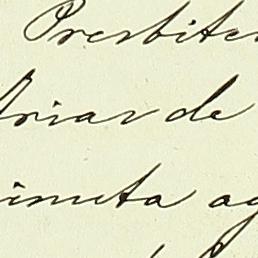 Presbiter
Arias de
imeta ag